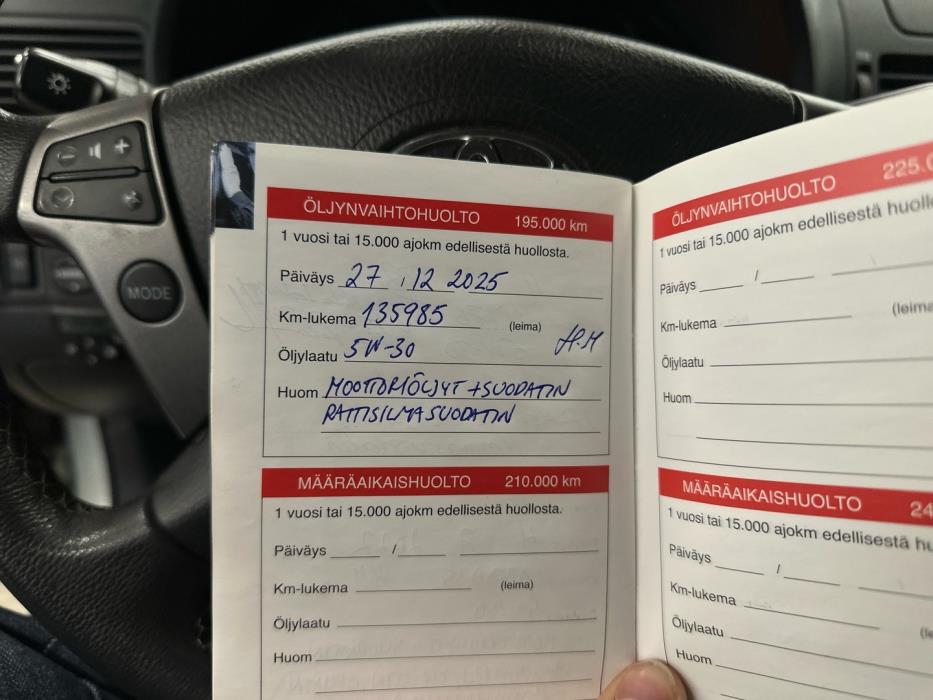 MODE
ÖLJYNVAIHTOHUOLTO 195.000 km
1 vuosi tai 15.000 ajokm edellisestä huollosta.
Päiväys 27 / 12 2025
Km-lukema 135985 (leima)
Öljylaatu 5W-30 H.M
Huom MOOTTORIÖLJYT + SUODATIN
RAITISILMASUODATIN
MÄÄRÄAIKAISHUOLTO 210.000 km
1 vuosi tai 15.000 ajokm edellisestä huollosta.
Päiväys /
Km-lukema (leima)
Öljylaatu
Huom
ÖLJYNVAIHTOHUOLTO 225.0
1 vuosi tai 15.000 ajokm edellisestä huoll
Päiväys /
Km-lukema (leima
Öljylaatu
Huom
MÄÄRÄAIKAISHUOLTO 24
1 vuosi tai 15.000 ajokm edellisestä hu
Päiväys /
Km-lukema
Öljylaatu
Huom